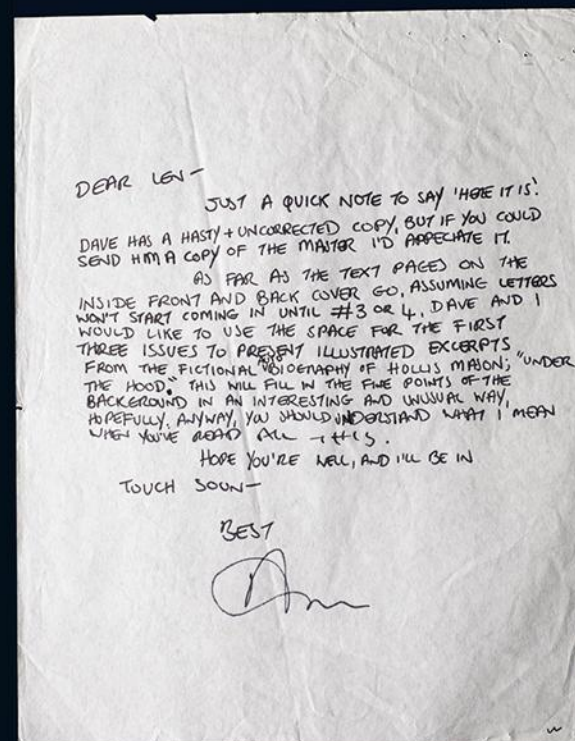 DEAR LEN—
JUST A QUICK NOTE TO SAY 'HERE IT IS'.
DAVE HAS A HASTY + UNCORRECTED COPY, BUT IF YOU COULD
SEND HIM A COPY OF THE MASTER I'D APPECIATE IT.
AS FAR AS THE TEXT PAGES ON THE
INSIDE FRONT AND BACK COVER GO, ASSUMING LETTERS
WON'T START COMING IN UNTIL #3 OR 4, DAVE AND I
WOULD LIKE TO USE THE SPACE FOR THE FIRST
THREE ISSUES TO PRESENT ILLUSTRATED EXCERPTS
FROM THE FICTIONAL AUTOBIOGRAPHY OF HOLLIS MASON; "UNDER
THE HOOD." THIS WILL FILL IN THE FINE POINTS OF THE
BACKGROUND IN AN INTERESTING AND UNUSUAL WAY,
HOPEFULLY. ANYWAY, YOU SHOULD UNDERSTAND WHAT I MEAN
WHEN YOU'VE READ ALL THIS.
HOPE YOU'RE WELL, AND I'LL BE IN
TOUCH SOON—
BEST